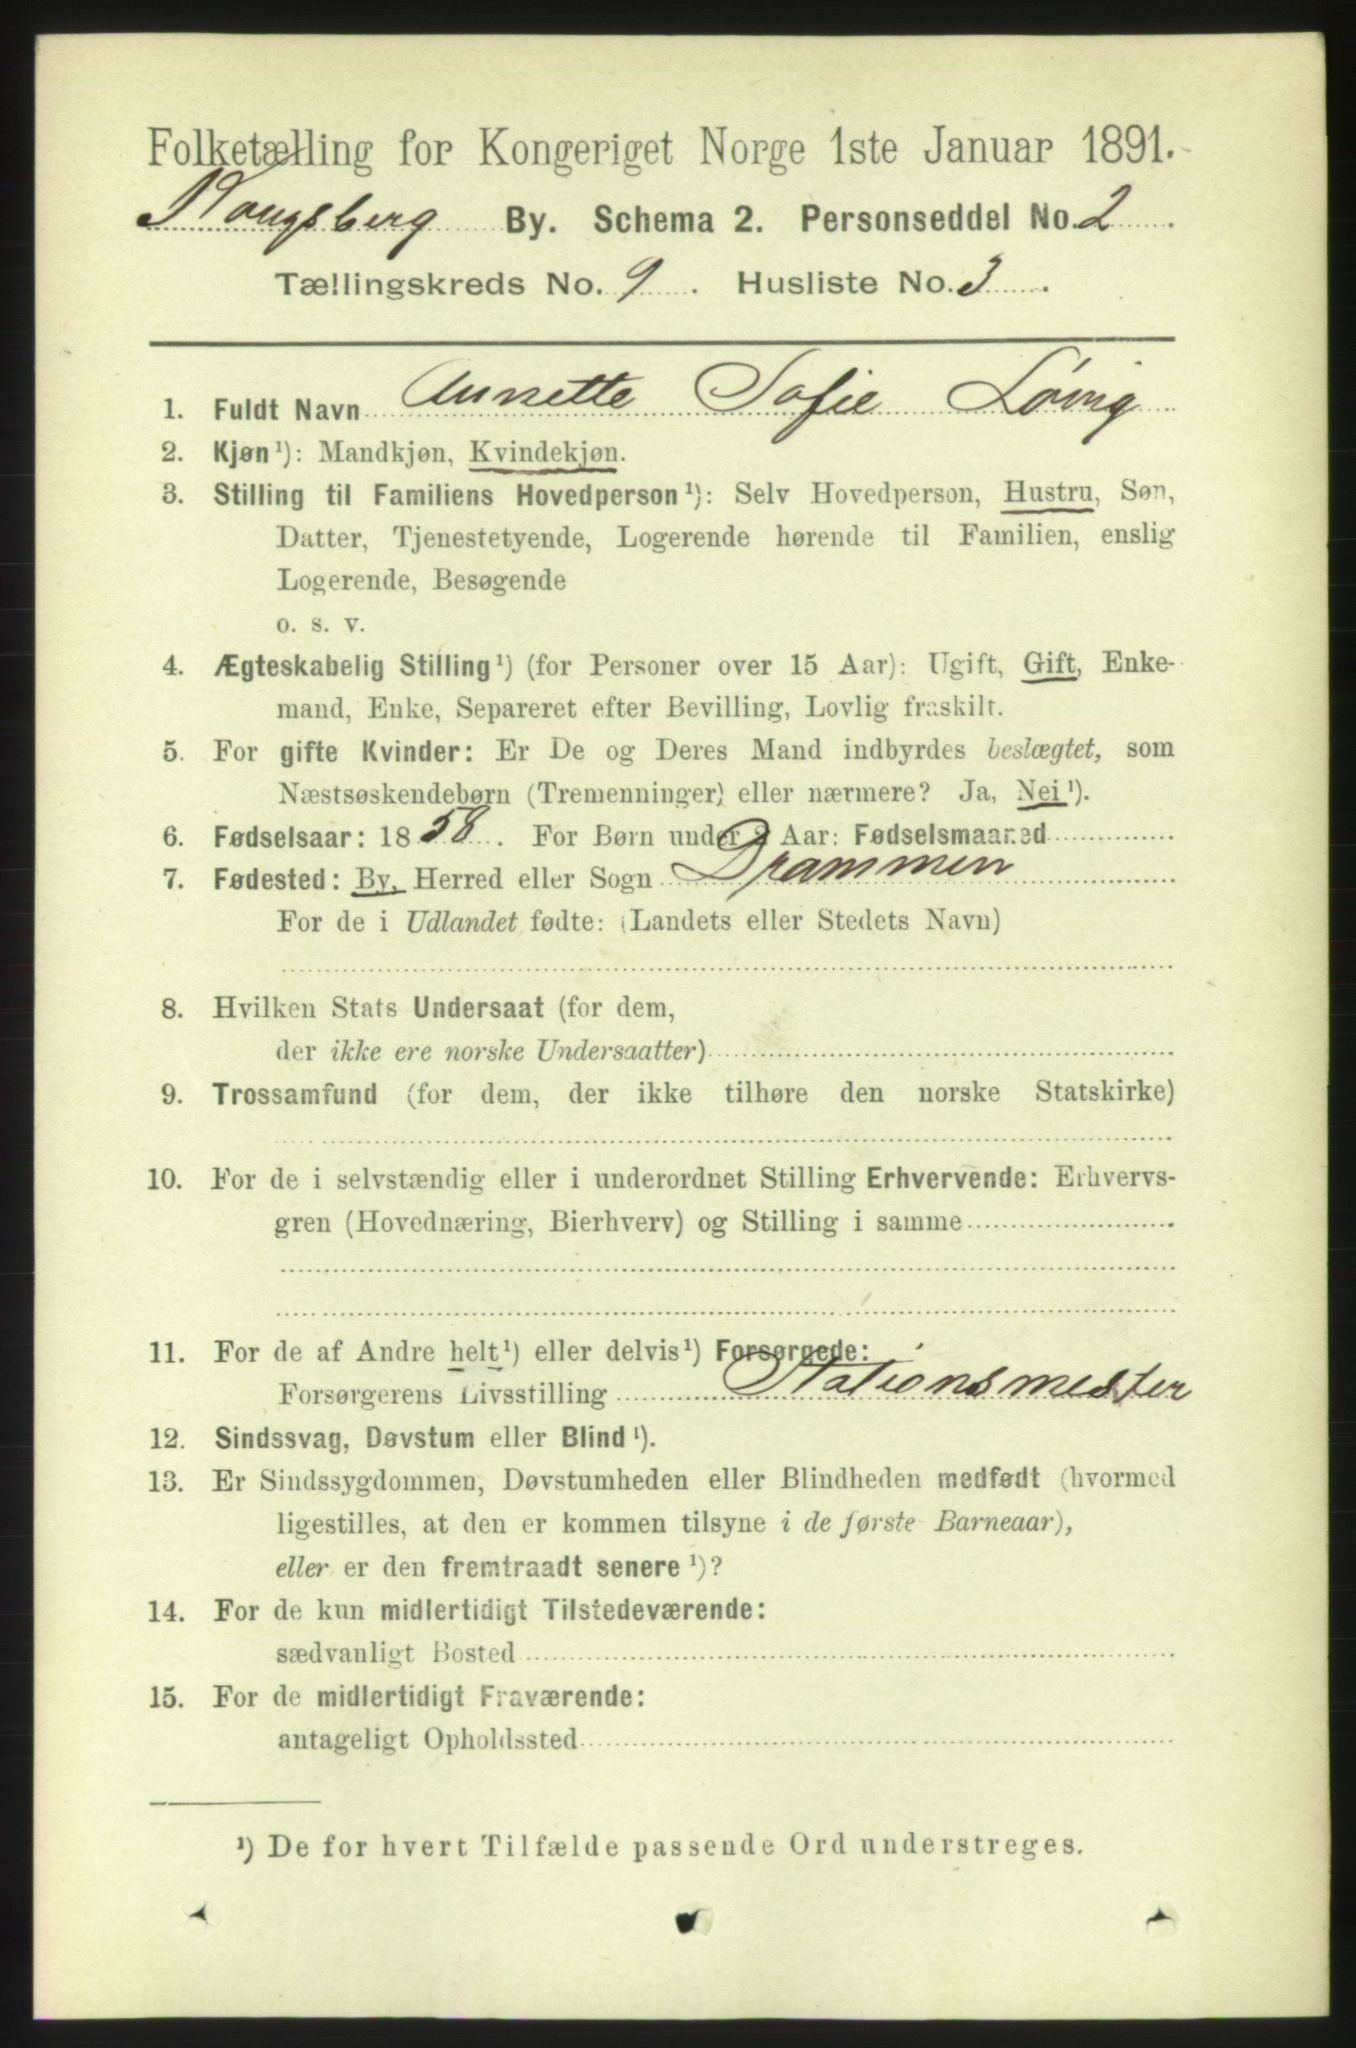 Folketælling for Kongeriget Norge 1ste Januar 1891.
Kongsberg By. Schema 2. Personseddel No. 2.
Tællingskreds No. 9. Husliste No. 3.
1. Fuldt Navn Annette Sofie Løvig
2. Kjøn¹): Mandkjøn, Kvindekjøn.
3. Stilling til Familiens Hovedperson¹): Selv Hovedperson, Hustru, Søn,
Datter, Tjenestetyende, Logerende hørende til Familien, enslig
Logerende, Besøgende
o. s. v.
4. Ægteskabelig Stilling¹) (for Personer over 15 Aar): Ugift, Gift, Enke-
mand, Enke, Separeret efter Bevilling, Lovlig fraskilt.
5. For gifte Kvinder: Er De og Deres Mand indbyrdes beslægtet, som
Næstsøskendebørn (Tremenninger) eller nærmere? Ja, Nei¹).
6. Fødselsaar: 1858. For Børn under 2 Aar: Fødselsmaaned
7. Fødested: By, Herred eller Sogn Drammen
For de i Udlandet fødte: (Landets eller Stedets Navn)
8. Hvilken Stats Undersaat (for dem,
der ikke ere norske Undersaatter)
9. Trossamfund (for dem, der ikke tilhøre den norske Statskirke)
10. For de i selvstændig eller i underordnet Stilling Erhvervende: Erhvervs-
gren (Hovednæring, Bierhverv) og Stilling i samme
11. For de af Andre helt¹) eller delvis¹) Forsørgede:
Forsørgerens Livsstilling Stationsmester
12. Sindssvag, Døvstum eller Blind¹).
13. Er Sindssygdommen, Døvstumheden eller Blindheden medfødt (hvormed
ligestilles, at den er kommen tilsyne i de første Barneaar),
eller er den fremtraadt senere¹)?
14. For de kun midlertidigt Tilstedeværende:
sædvanligt Bosted
15. For de midlertidigt Fraværende:
antageligt Opholdssted
¹) De for hvert Tilfælde passende Ord understreges.